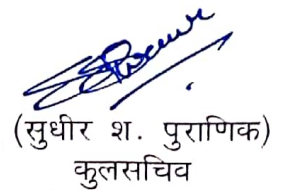 (सुधीर श. पुराणिक)
कुलसचिव